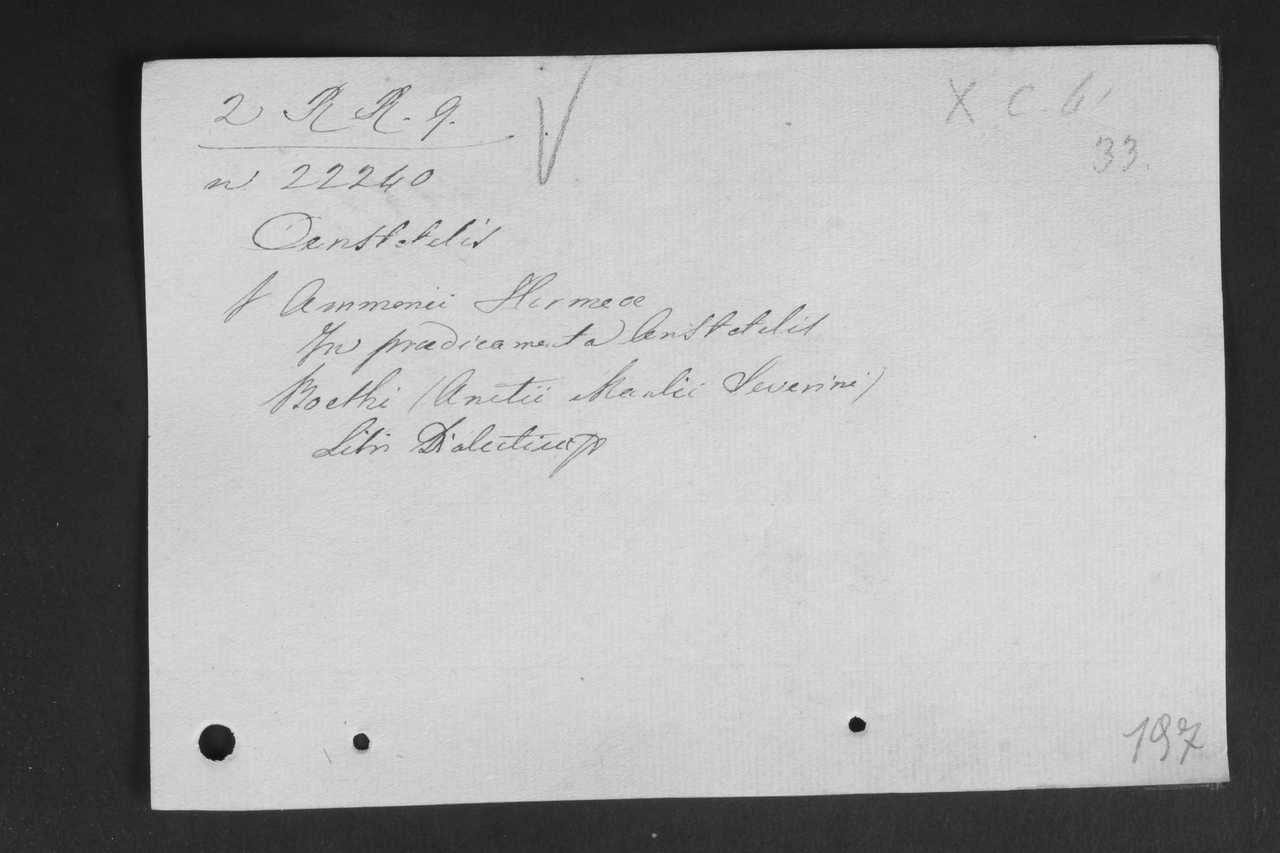 2 R R. 9.
X C. 6'
33.
n 22240
Aristotelis
f Ammonii Hermeæ
In prædicamenta Aristotelis
Boethi (Anitii Manlii Severini)
Libri Dialecticæ
197